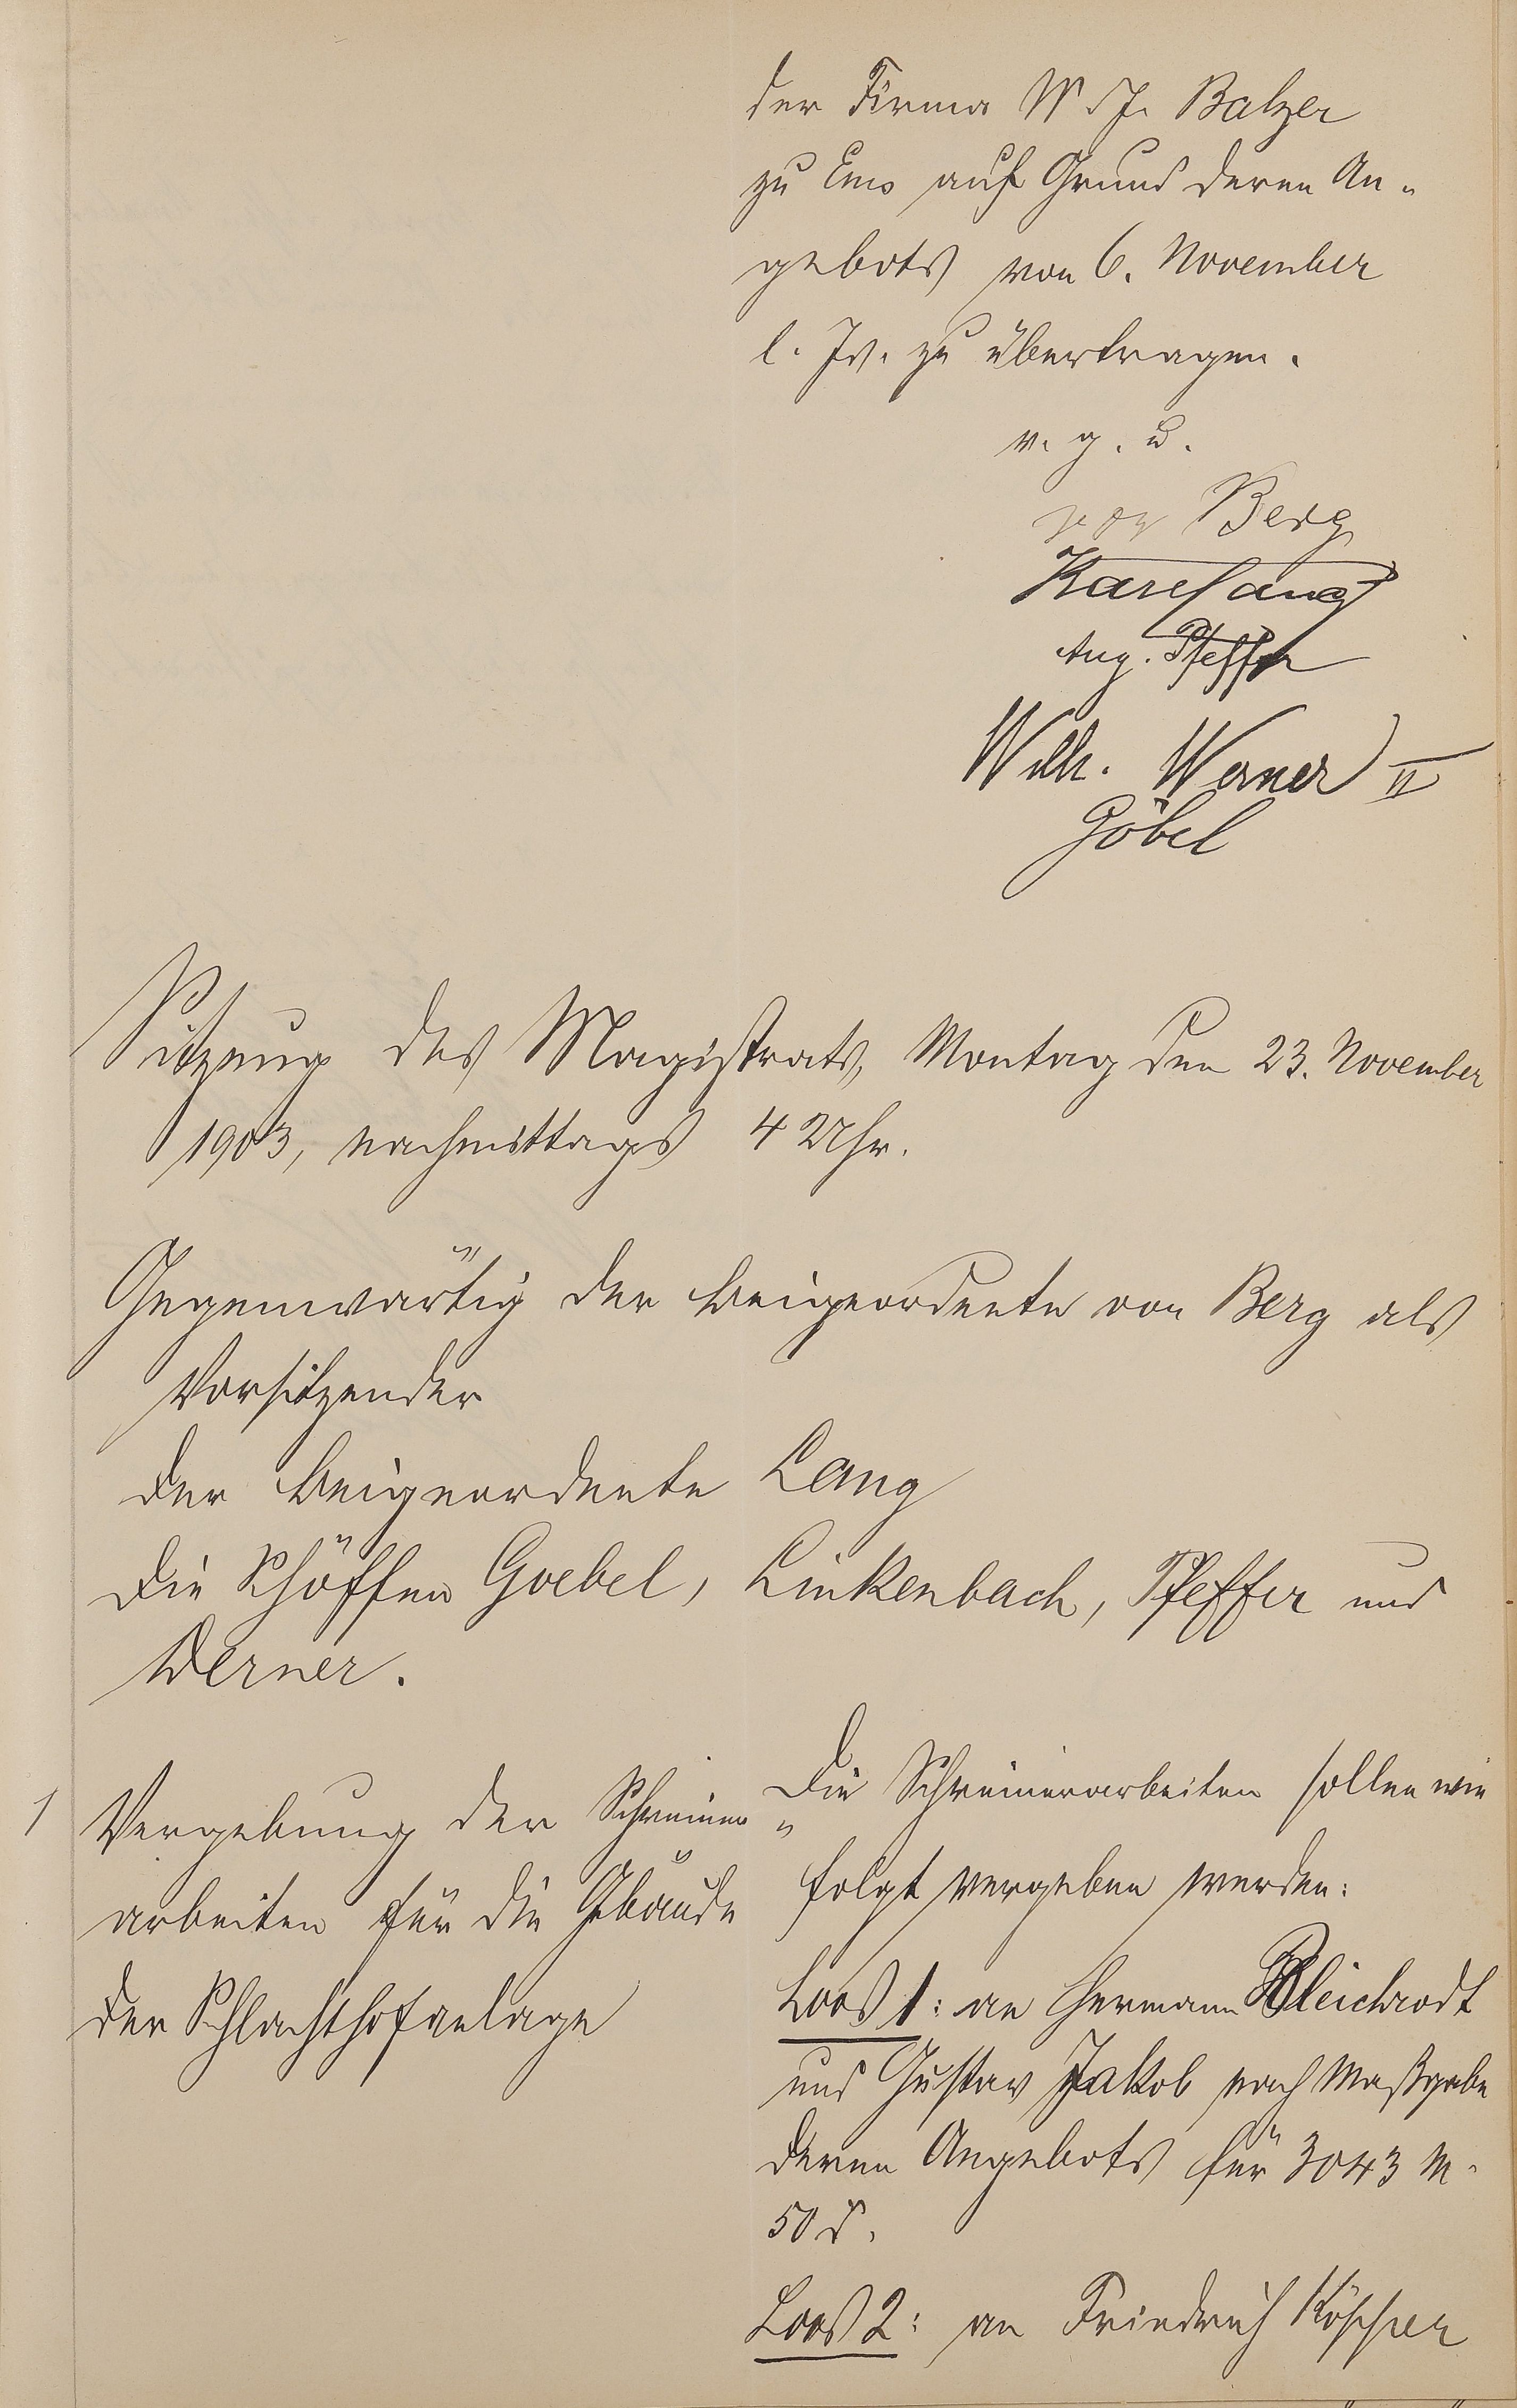 der Firma W. J. Balzer
zu Ems auf Grund deren An-
gebots von 6. November
l. Js. zu übertragen.
v. g. u.
von Berg
Karl Lang
Aug. Pfeffer
Wilh. Werner II
Göbel
Sitzung des Magistrats, Montag den 23. November
1903, nachmittags 4 Uhr.
Gegenwärtig der Beigeordnete von Berg als
Vorsitzender
der Beigeordnete Lang
die Schöffen Goebel, Linkenbach, Pfeffer und
Werner.
1 Vergebung der Schreiner-
arbeiten für die Gebäude
der Schlachthofanlage
Die Schreinerarbeiten sollen wie
folgt vergeben werden:
Loos 1: an Hermann Bleichrodt
und Gustav Jakob nach Maßgabe
deren Angebots für 3043 M.
50 ₰.
Loos 2: an Friedrich